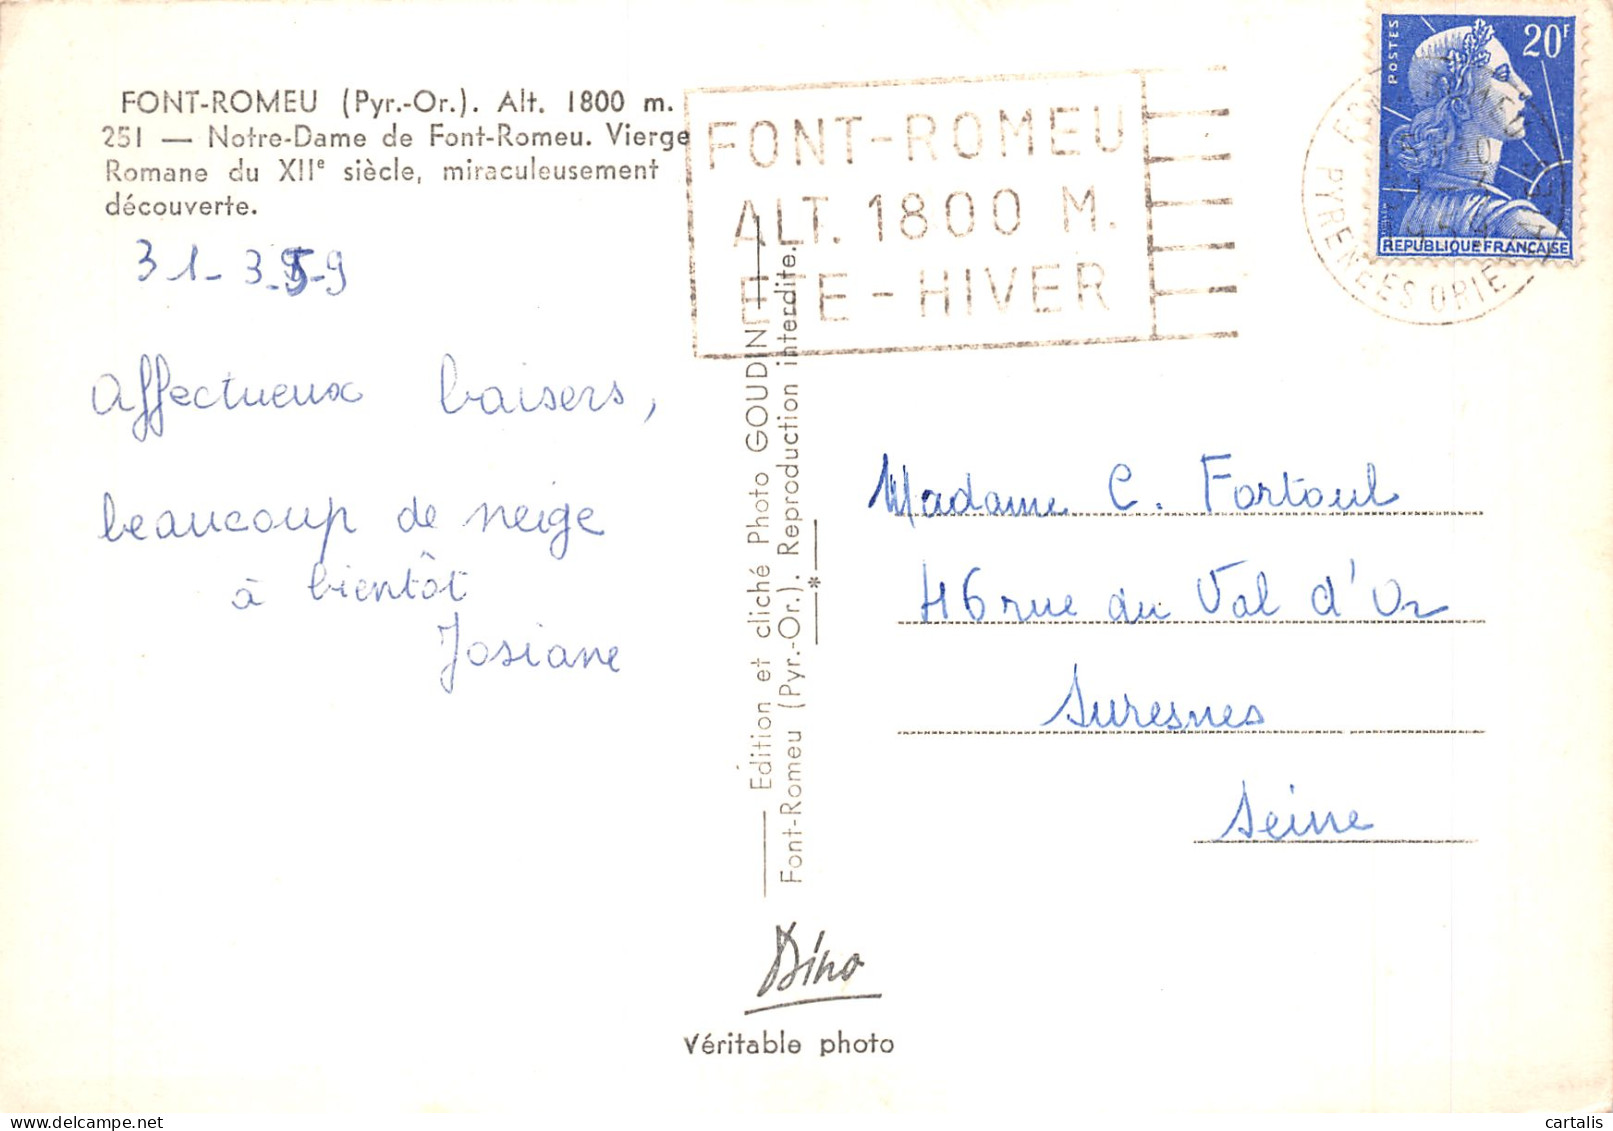 FONT-ROMEU (Pyr.-Or.). Alt. 1800 m.
251 — Notre-Dame de Font-Romeu. Vierge
Romane du XIIe siècle, miraculeusement
découverte.
31-3-59
Affectueux baisers,
beaucoup de neige
à bientôt
Josiane
FONT-ROMEU
ALT. 1800 M.
ETE - HIVER
POSTES
20F
REPUBLIQUE FRANÇAISE
PYRENEES ORIE
Edition et cliché Photo GOUDIN
Font-Romeu (Pyr.-Or.). Reproduction interdite.
*
Madame C. Fortoul
46 rue du Val d'Or
Suresnes
Seine
Dino
Véritable photo
cartalis